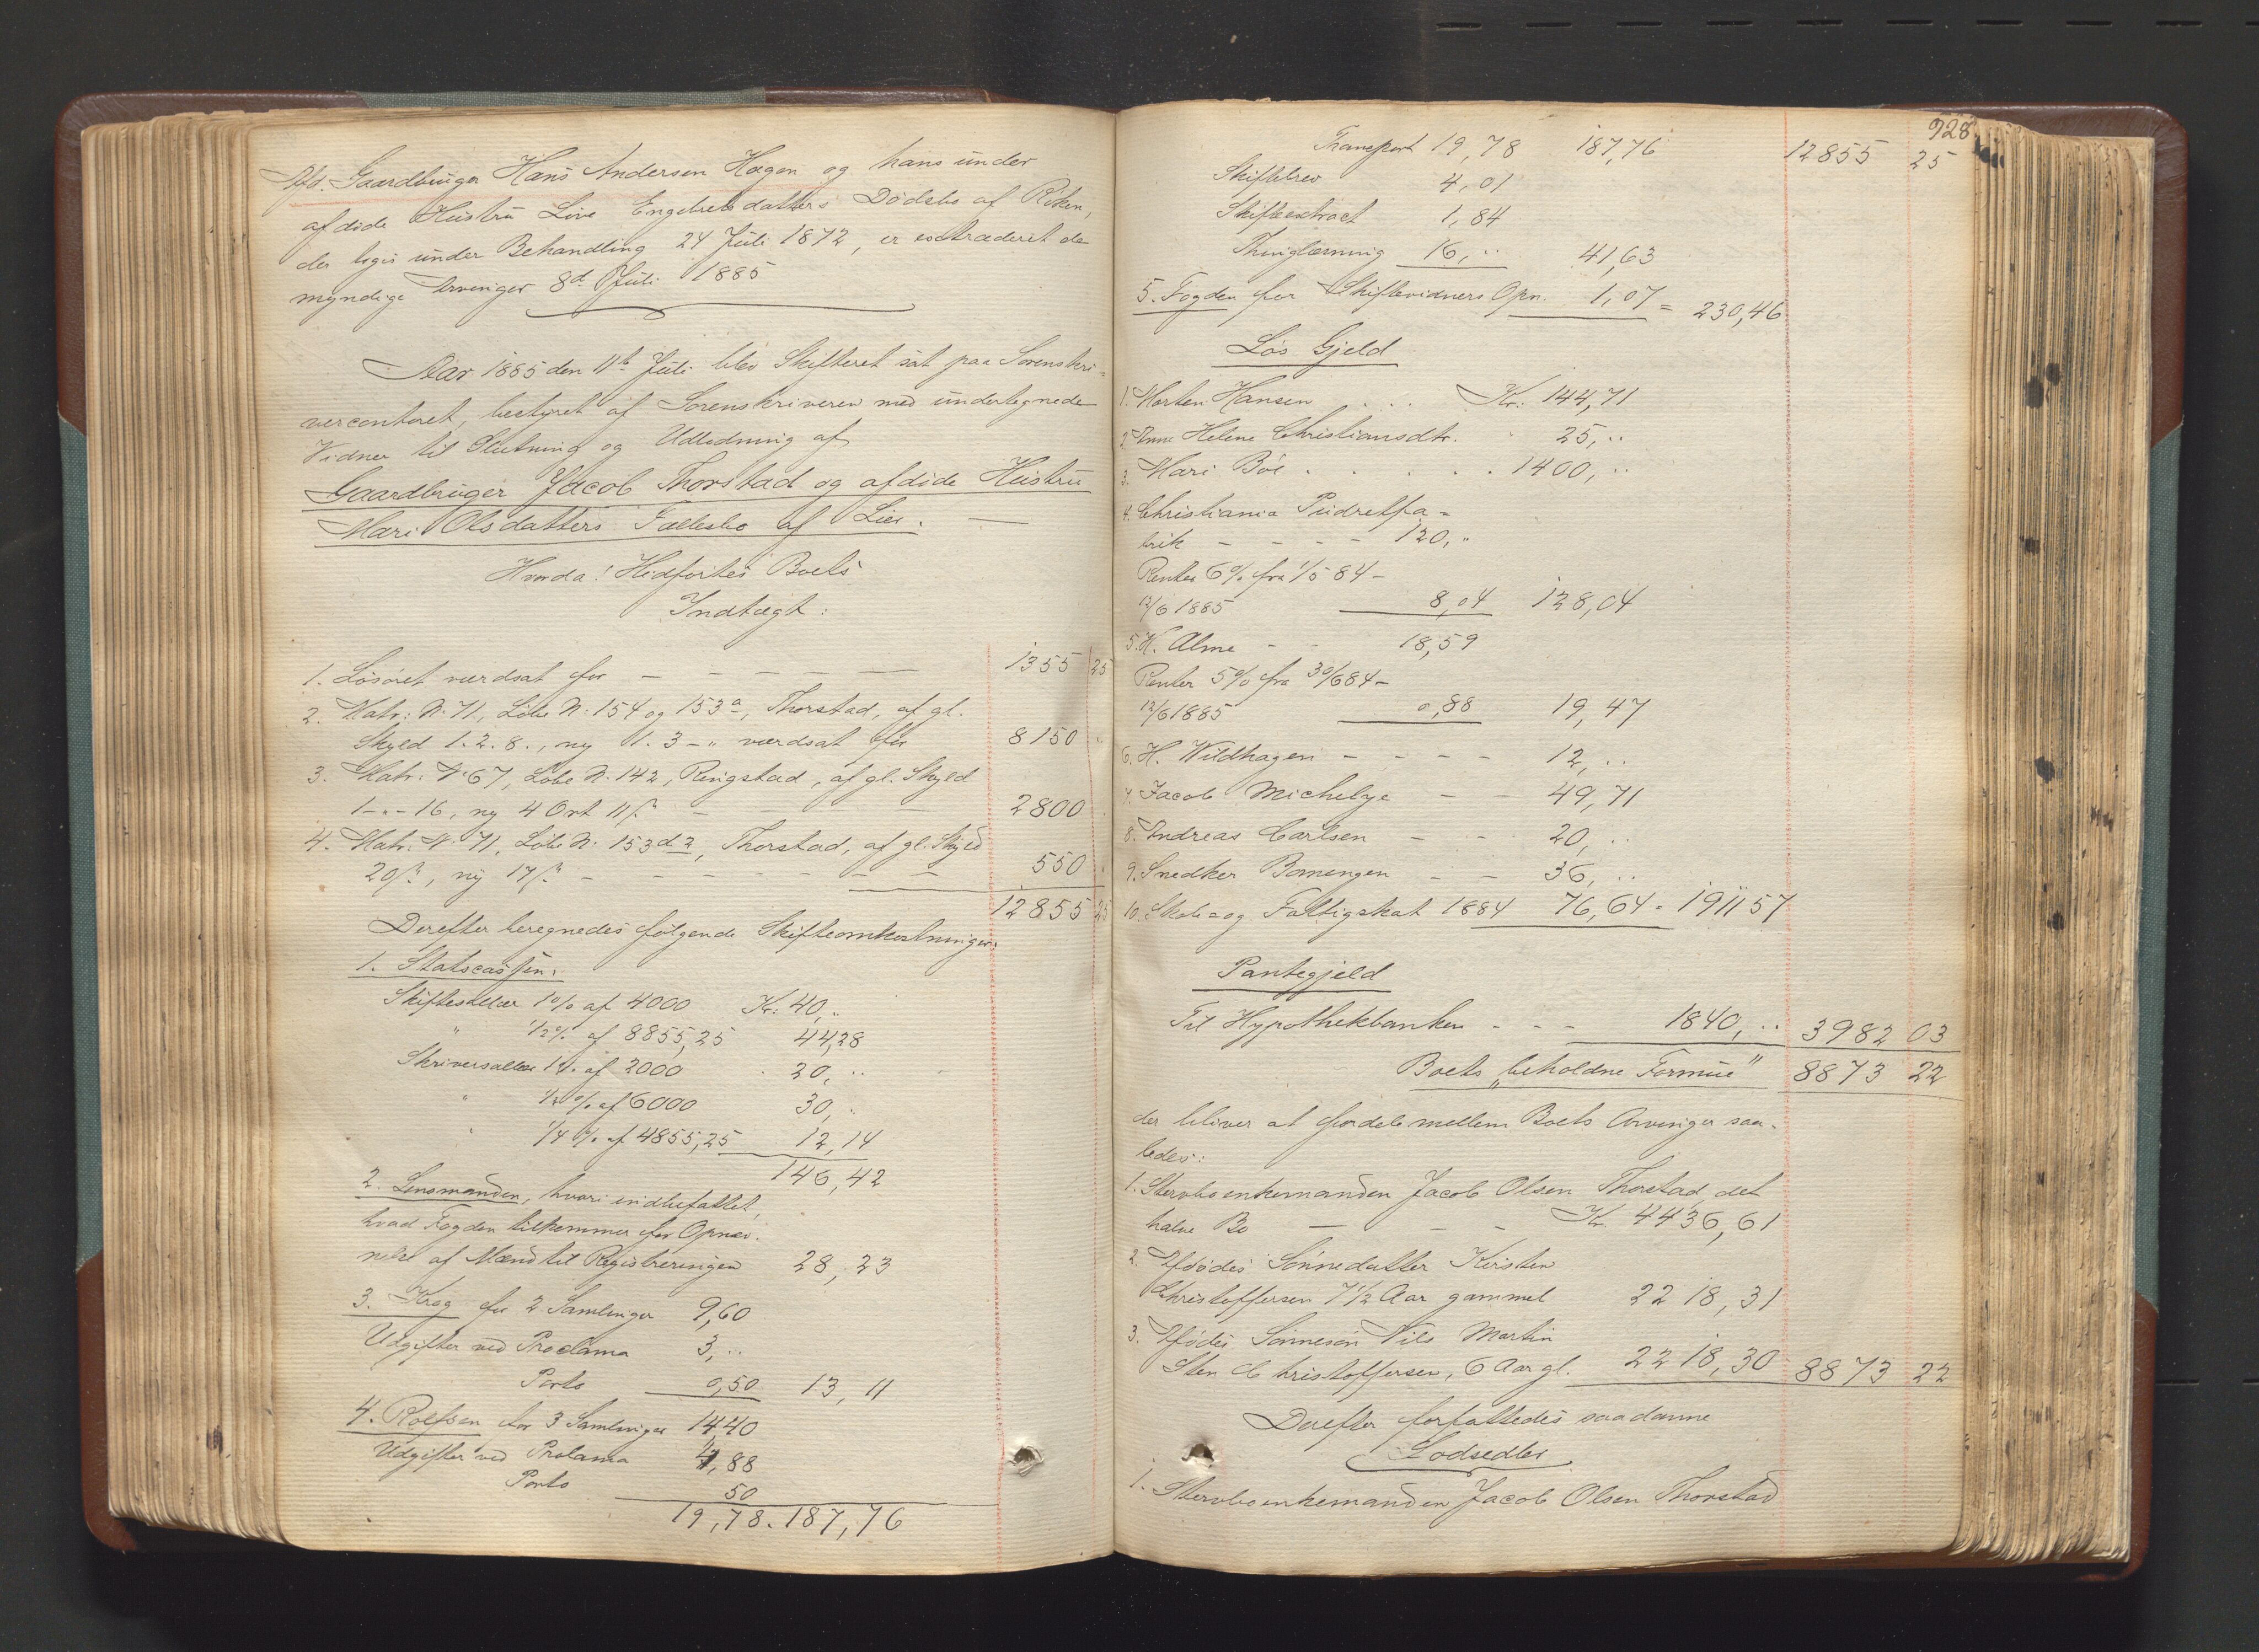 Afd. Gaardbruger Hans Andersen Hagen og hans under
afdøde Hustru Live Engebretsdatters Dødsbo af Røken,
der toges under Behandling 24 Juli 1872, er extraderet de
myndige Arvinger 8d Juli 1885
Aar 1885 den 11te Juli blev Skifteret sat paa Sorenskri=
vercontoret, bestyret af Sorenskriveren med undertegnede
Vidner til Slutning og Udlodning af
Gaardbruger Jacob Thorstad og afdøde Hustru
Mari Olsdatters Fællesbo af Lier. —
Hvorda! Hidførtes Boets
Indtægt:
1. Løsøret værdsat for — — — — — 1355 25
2. Matr: N. 71, Løbe N. 154 og 153a, Thorstad, af gl.
Skyld 1. 2. 8., ny 1. 3 - " værdsat for 8150 "
3. Matr: N. 67, Løbe N. 142, Ringstad, af gl. Skyld
1 - " - 16, ny 4 Ort 11 ß — — — 2800
4. Matr. N. 71, Løbe N. 153 d 2, Thorstad, af gl. Skyld
20 ß, ny 17 ß - - - - - - - 550
12855 25
Derefter beregnedes følgende Skifteomkostninger:
1. Statscassen:
Skiftesallær 1 % af 4000 Kr: 40, ..
" 1/2 % af 8855,25 44,28
Skriversallær 1 % af 2000 20, ..
" 1/2 % af 6000 30, ..
" 1/4 % af 4855,25 12,14
146,42
2. Lensmanden, hvori indbefattet,
hvad Fogden tilkommer for Opnæv-
nelse af Mænd til Registreringen 28,23
3. Krog for 2 Samlinger 9,60
Udgifter ved Proclama 3, ..
Porto 0,50 13,11
4. Rolfsen for 3 Samlinger 14,40
Udgifter ved Prolama 4,88
Porto 50
19,78. 187,76
928
Transport 19,78 187,76 12855 25
Skiftebrev 4,01
Skifteextract 1,84
Thinglæsning 16, .. 41,63
5. Fogden for Skiftevidners Opn. 1,07 = 230,46
Løs Gjeld
1. Morten Hansen . . . Kr: 144,71
2. Anne Helene Christiansdtr. 25, ..
3. Mari Bøe . . . . . 1400, ..
4. Christiania Pudretfa=
brik - - - - 120, "
Renter 6 % fra 1/5 84 -
12/6 1885 8,04 128,04
5. K. Alme - - 18,59
Renter 5 % fra 30/6 84 -
12/6 1885 0,88 19,47
6. H. Wildhagen - - - - 12, ..
7. Jacob Michelge - - 49,71
8. Andreas Carlsen - - 20, ..
9. Snedker Bomengen - - 36, ..
10. Skole og Fattigskat 1884 76,64 = 1911 57
Pantegjeld
Til Hypothekbanken - - - 1840, .. 3982 03
Boets „beholdne Formue" 8873 22
der bliver at fordele mellem Boets Arvinger saa-
ledes:
1. Stervboenkemanden Jacob Olsen Thorstad, det
halve Bo — - - Kr. 4436,61
2. Afdødes Sønnedatter Kirsten
Christoffersen 7 1/2 Aar gammel 2218,31
3. Afdødes Sønnesøn Nils Martin
Sten Christoffersen, 6 Aar gl. 2218,30 8873 22
Derefter forfattedes saadanne
Lodsedler
1. Stervboenkemanden Jacob Olsen Thorstad